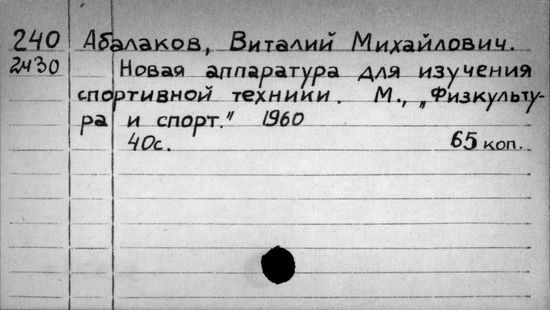 240 Абалаков, Виталий Михайлович.
2430 Новая аппаратура для изучения
спортивной техники. М., „Физкульту-
ра и спорт." 1960
40с. 65 коп.